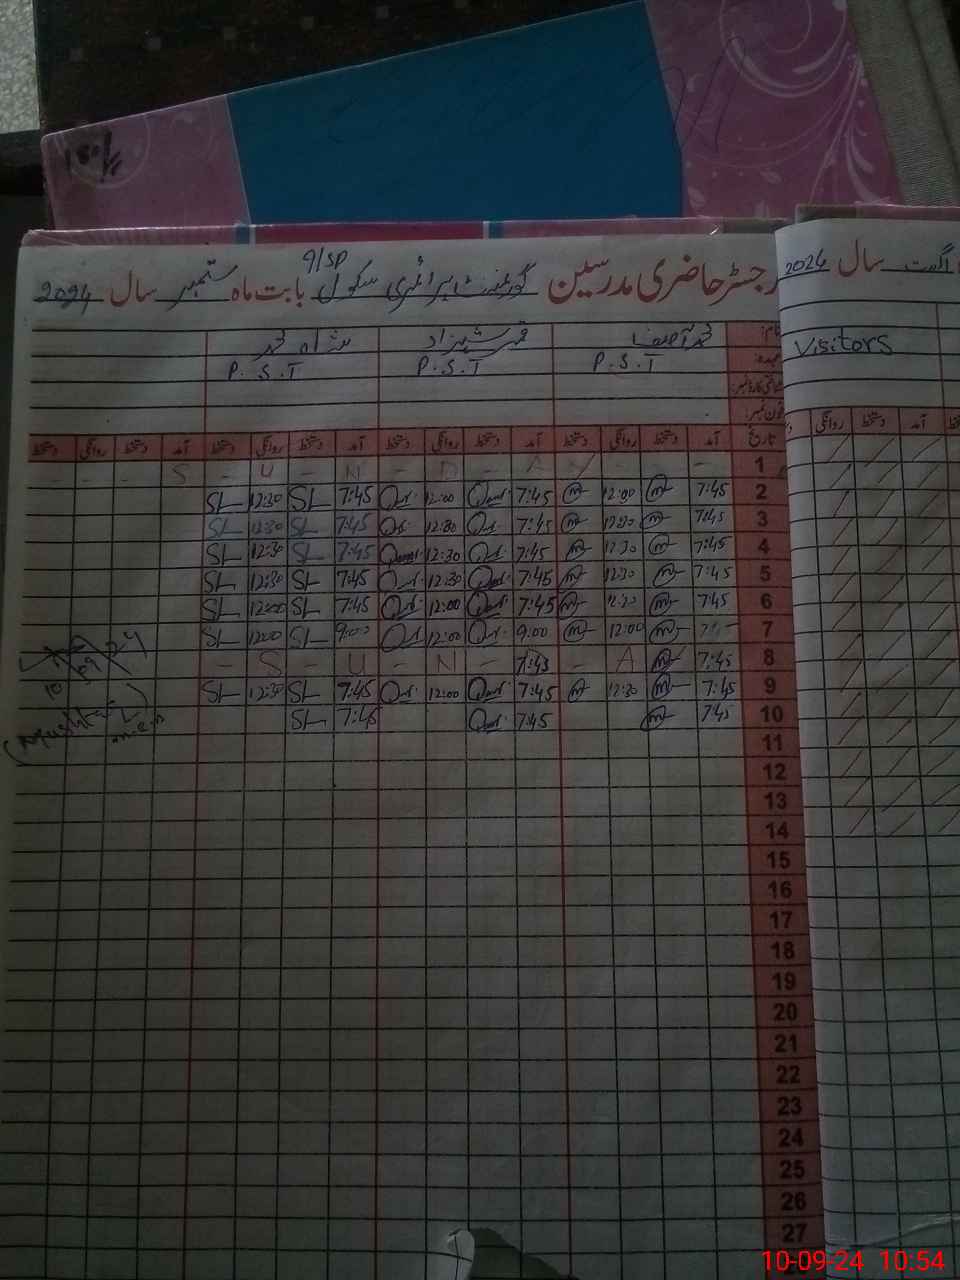 رجسٹر حاضری مدرسین گورنمنٹ پرائمری سکول 9/SP بابت ماہ ستمبر سال 2024
اگست سال 2024
نام:
محمد آصف
شہزاد
عہدہ:
P.S.T
P.S.T
P.S.T
Visitors
تاریخ آمد دستخط روانگی دستخط آمد دستخط روانگی دستخط آمد دستخط روانگی دستخط آمد دستخط روانگی دستخط
آمد دستخط روانگی
1 S - U - N - D - A - Y
2 7:45 12:00 7:45 12:00 7:45 SL 12:30 SL
3 7:45 12:30 7:45 12:30 7:45 SL 12:30 SL
4 7:45 12:30 7:45 12:30 7:45 SL 12:30 SL
5 7:45 12:30 7:45 12:30 7:45 SL 12:30 SL
6 7:45 12:30 7:45 12:00 7:45 SL 12:00 SL
7 12:00 9:00 12:00 9:00 SL 12:00 SL
8 7:45 - S - U - N - A
9 7:45 12:30 7:45 12:00 7:45 SL 12:30 SL
10 7:45 7:45 7:45 SL
11
12
13
14
15
16
17
18
19
20
21
22
23
24
25
26
27
10-09-24 10:54